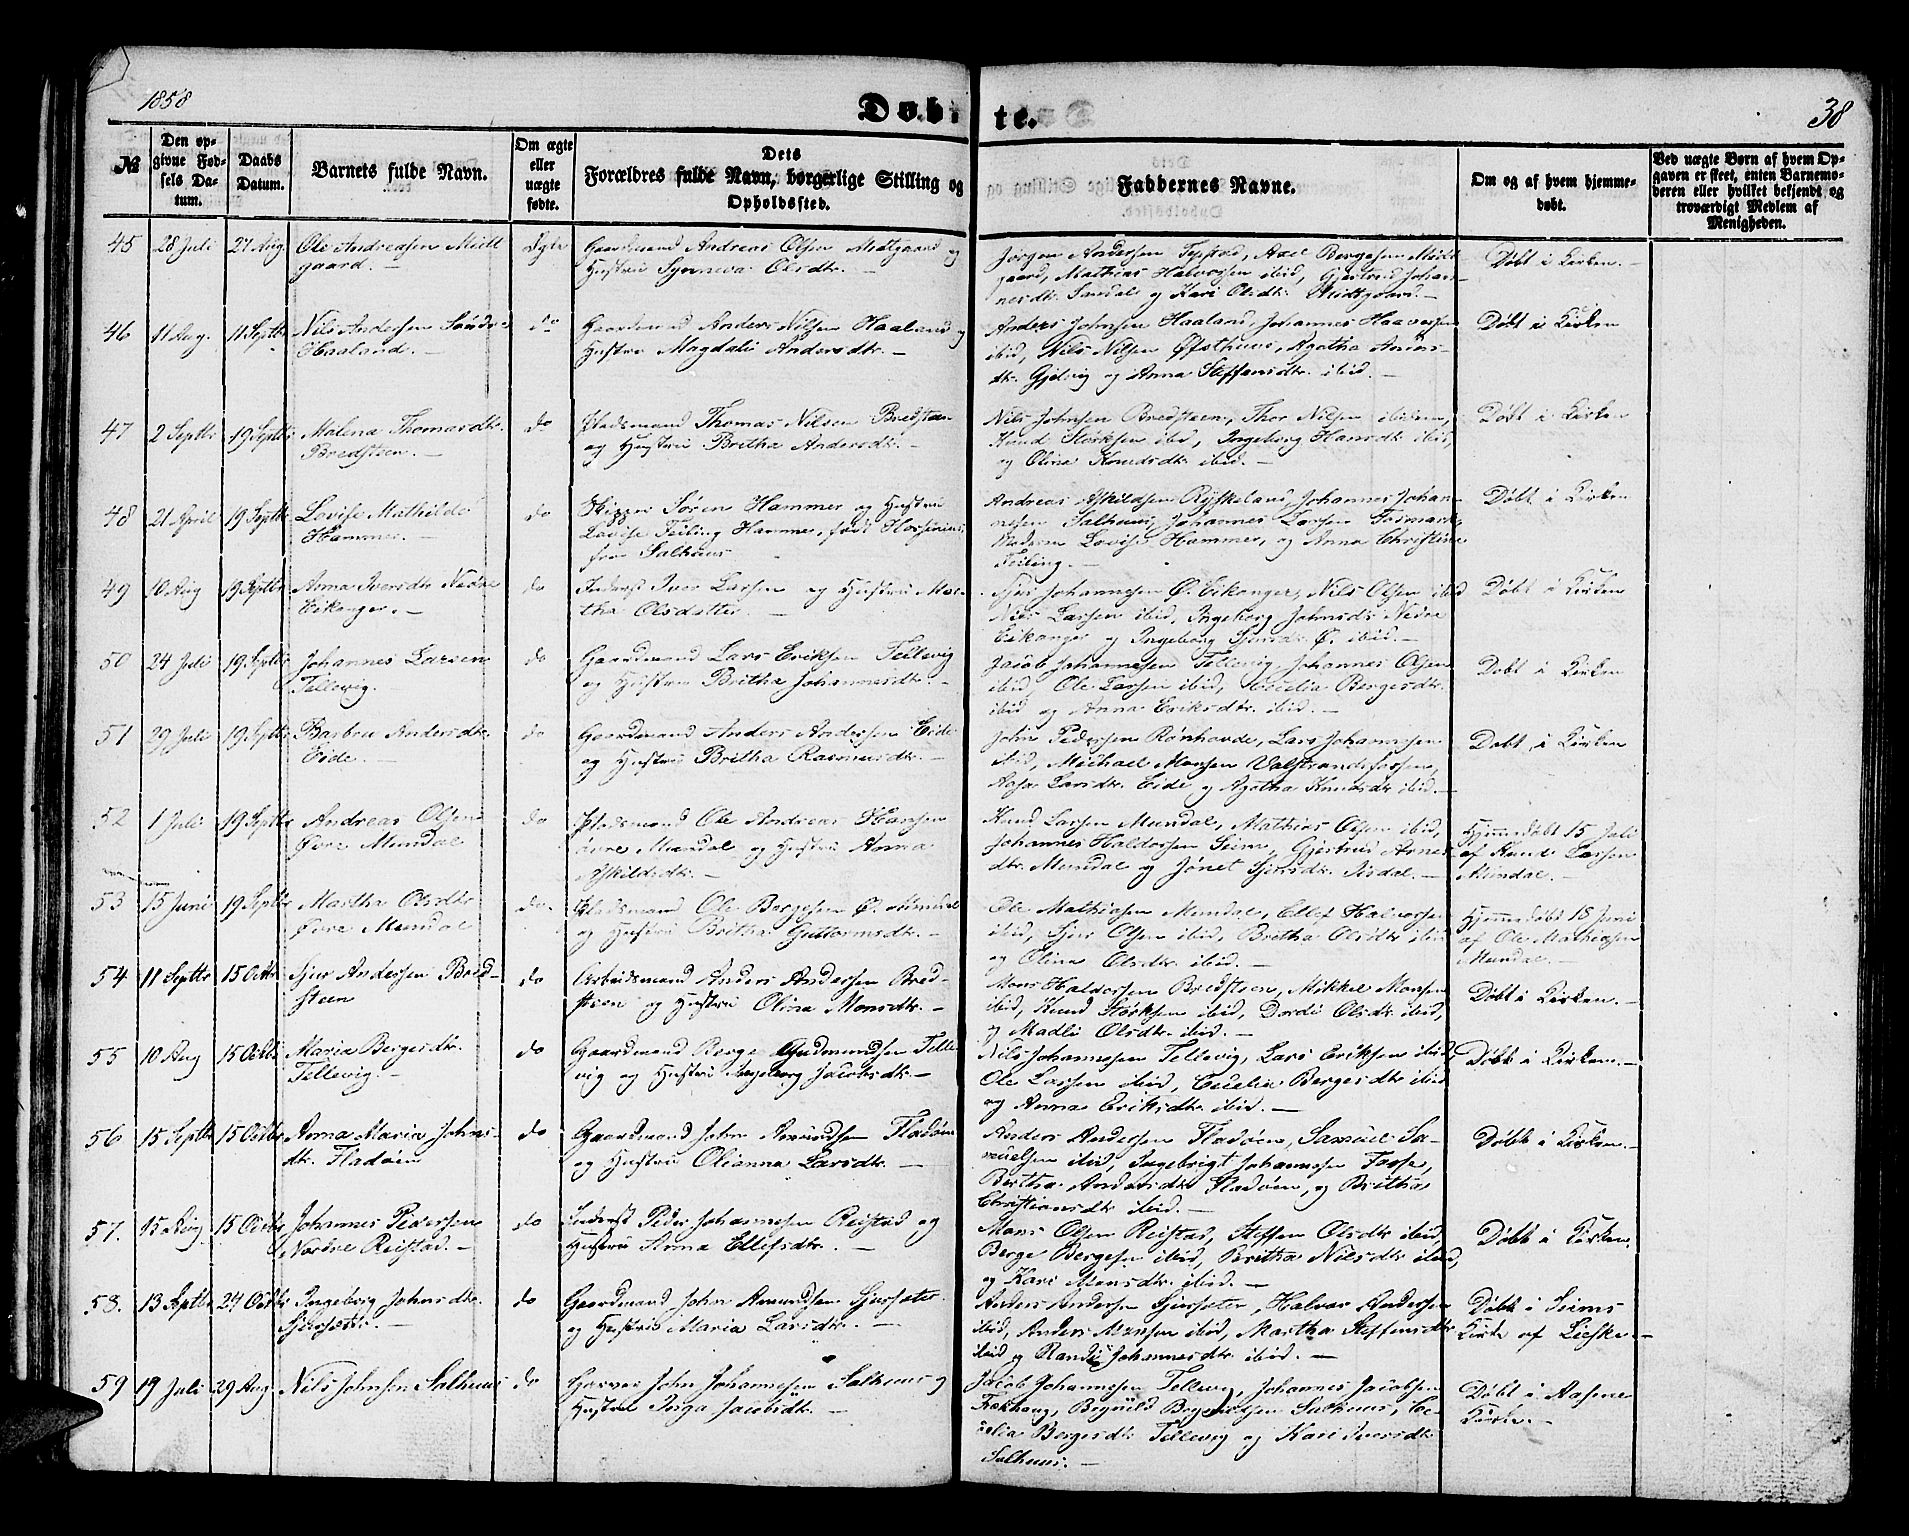 1858
Døbte.
38
№
Den opgivne Fødsels Datum.
Daabs Datum.
Barnets fulde Navn.
Om ægte eller uægte fødte.
Dets Forældres fulde Navn, borgerlige Stilling og Opholdssted.
Faddernes Navne.
Om og af hvem hjemmedøbt.
Ved uægte Børn af hvem Opgaven er skeet, enten Barnemoderen eller hvilket bekjendt og troværdigt Medlem af Menigheden.
45 28 Juli 27 Aug. Ole Andreasen Midtgaard. — Ægte
Gaardmand Andreas Olsen Midtgaard og
Hustru Synneva Olsdtr. —
Jørgen Andersen Axel Bergesen Midtgaard, Mathias Halvorsen ibid, Gjertrud Johannesdtr. Sandal og Kari Olsdtr. Midtgaard. —
Døbt i Kirken. —
46 11 Aug. 11 Septbr Nils Andersen Søndre Haaland. — do
Gaardmand Anders Nilsen Haaland og
Hustru Magdali Andersdtr. —
Anders Johnsen Haaland, Johannes Haavorsen
ibid, Nils Nilsen Øfsthuus, Agatha
dtr. Gjelvig og Anna Steffensdtr. ibid. —
Døbt i Kirken
47 2 Septbr 19 Septbr Malena Thomasdtr. Bredsteen. — do
Pladsmand Thomas Nilsen Bredsteen
og Hustru Britha Andersdtr. —
Nils Johnsen Bredsteen, Thor Nilsen ibidem,
Knud Størksen ibid, Ingeborg Hansdtr ibid,
og Olina Knudsdtr. ibid. —
Døbt i Kirken
48 21 April 19 Septbr Lovise Mathilde Hammer. — do
Skipper Søren Hammer og Hustru
Lovise Teiling Hammer, født
fra Salhuus
Andreas Askildsen Johannes Johannesen Salhuus, Johannes Larsen Fosmark,
Madame Lovise Hammer, og Anna Christine
Teiling. —
Døbt i Kirken
49 10 Aug 19 Septbr Anna Iversdtr Nedre Eikanger. — do
Inderst Iver Larsen og Hustru Martha Olsdatter —
Sjur Johannesen Ø. Eikanger, Nils Olsen ibid
Nils Larsen ibid, Ingeborg Johnsdtr Nedre
Eikanger og Ingeborg Sjursdtr. Ø. ibid. —
Døbt i Kirken
50 24 Juli 19 Septbr Johannes Larsen Tellevig. — do
Gaardmand Lars Eriksen Tellevig
og Hustru Britha Johannesdtr. —
Jacob Johannesen Tellevig, Johannes Olsen
ibid, Ole Larsen ibid, Cecelia Bergesdtr.
ibid og Anna Eriksdtr. ibid. —
Døbt i Kirken
51 29 Juli 19 Septbr Barbru Andersdtr. Eide. — do
Gaardmand Anders Andersen Eide
og Hustru Britha Rasmusdtr. —
John Pedersen Rønhovde, Lars Johannesen
ibid, Michael Monsen Valestrandsfossen,
Aasa Larsdtr. Eide og Agatha Knudsdtr ibid. —
Døbt i Kirken
52 1 Juli 19 Septbr Andreas Olsen Øvre Mundal do
Pladsmand Ole Andreas Hansen
øvre Mundal og Hustru Anna
Askildsdtr. —
Knud Larsen Mundal, Mathias Olsen ibid,
Johannes Haldorsen Seim, Gjertrud Arnesdtr. Mundal og Jønet Sjursdtr. Iisdal. —
Hjemmedøbt 15 Juli
af Knud Larsen
Mundal. —
53 15 Juni 19 Septbr Martha Olsdtr Øvre Mundal do.
Pladsmand Ole Bergesen Ø. Mundal
og Hustru Britha Guttormsdtr. —
Ole Mathiasen Mundal, Ellef Halvorsen
ibid, Sjur Olsen ibid, Britha Olsdtr ibid
og Olina Olsdtr. ibid. —
Hjemmedøbt 18 Juni
af Ole Mathiasen
Mundal. —
54 11 Septbr 15 Octbr Sjur Andersen Bredsteen do
Arbeidsmand Anders Andersen Bredsteen og Hustru Olina Monsdtr. —
Mons Haldorsen Bredsteen, Mikkel Monsen
ibid, Knud Størksen ibid, Dordi Olsdtr ibid,
og Madli Olsdtr. ibid. —
Døbt i Kirken. —
55 10 Aug 15 Octbr Maria Bergesdtr. Tellevig. — do
Gaardmand Berge Gudmundsen Tellevig og Hustru Ingeborg Jacobsdtr. —
Nils Johannesen Tellevig, Lars Eriksen ibid,
Ole Larsen ibid, Cecelia Bergesdtr ibid
og Anna Eriksdtr. ibid. —
Døbt i Kirken. —
56 15 Septbr 15 Octbr Anna Maria Johnsdtr. Fladøen do
Gaardmand John Amundsen Fladøen
og Hustru Olianna Larsdtr. —
Anders Andersen Fladøen, Samuel Samuelsen ibid, Ingebrigt Johannesen Fosse,
Britha Andersdtr Fladøen, og Britha
Christiansdtr ibid. —
Døbt i Kirken. —
57. 15 Aug. 15 Octbr Johannes Pedersen Nordre Reistad. — do
Inderst Peder Johannesen Reistad og
Hustru Anna Ellefsdtr. —
Mons Olsen Reistad, Steffen Olsdtr ibid,
Berge Bergesen ibid, Britha Nilsdtr ibid,
og Kari Monsdtr. ibid. —
Døbt i Kirken.
58. 13 Septbr 24 Octbr Ingeborg Johnsdtr. Sjursæter. — do
Gaardmand John Amundsen Sjursæter
og Hustru Maria Larsdtr. —
Anders Andersen Sjursæter, Halvor Andersen
ibid, Anders Monsen ibid, Martha Steffensdtr
ibid og Randi Johannesdtr. ibid. —
Døbt i Seims
Kirke af —
59 19 Juli 29 Aug. Nils Johnsen Salhuus do
Garver John Johannesen Salhuus og
Hustru Inga Jacobsdtr. —
Jacob Johannesen Tellevig, Johannes Jacobsen
Salhuus, Cecelia Bergesdtr. Tellevig og Kari Iversdtr.
Salhuus. —
Døbt i Aasene
Kirke. —